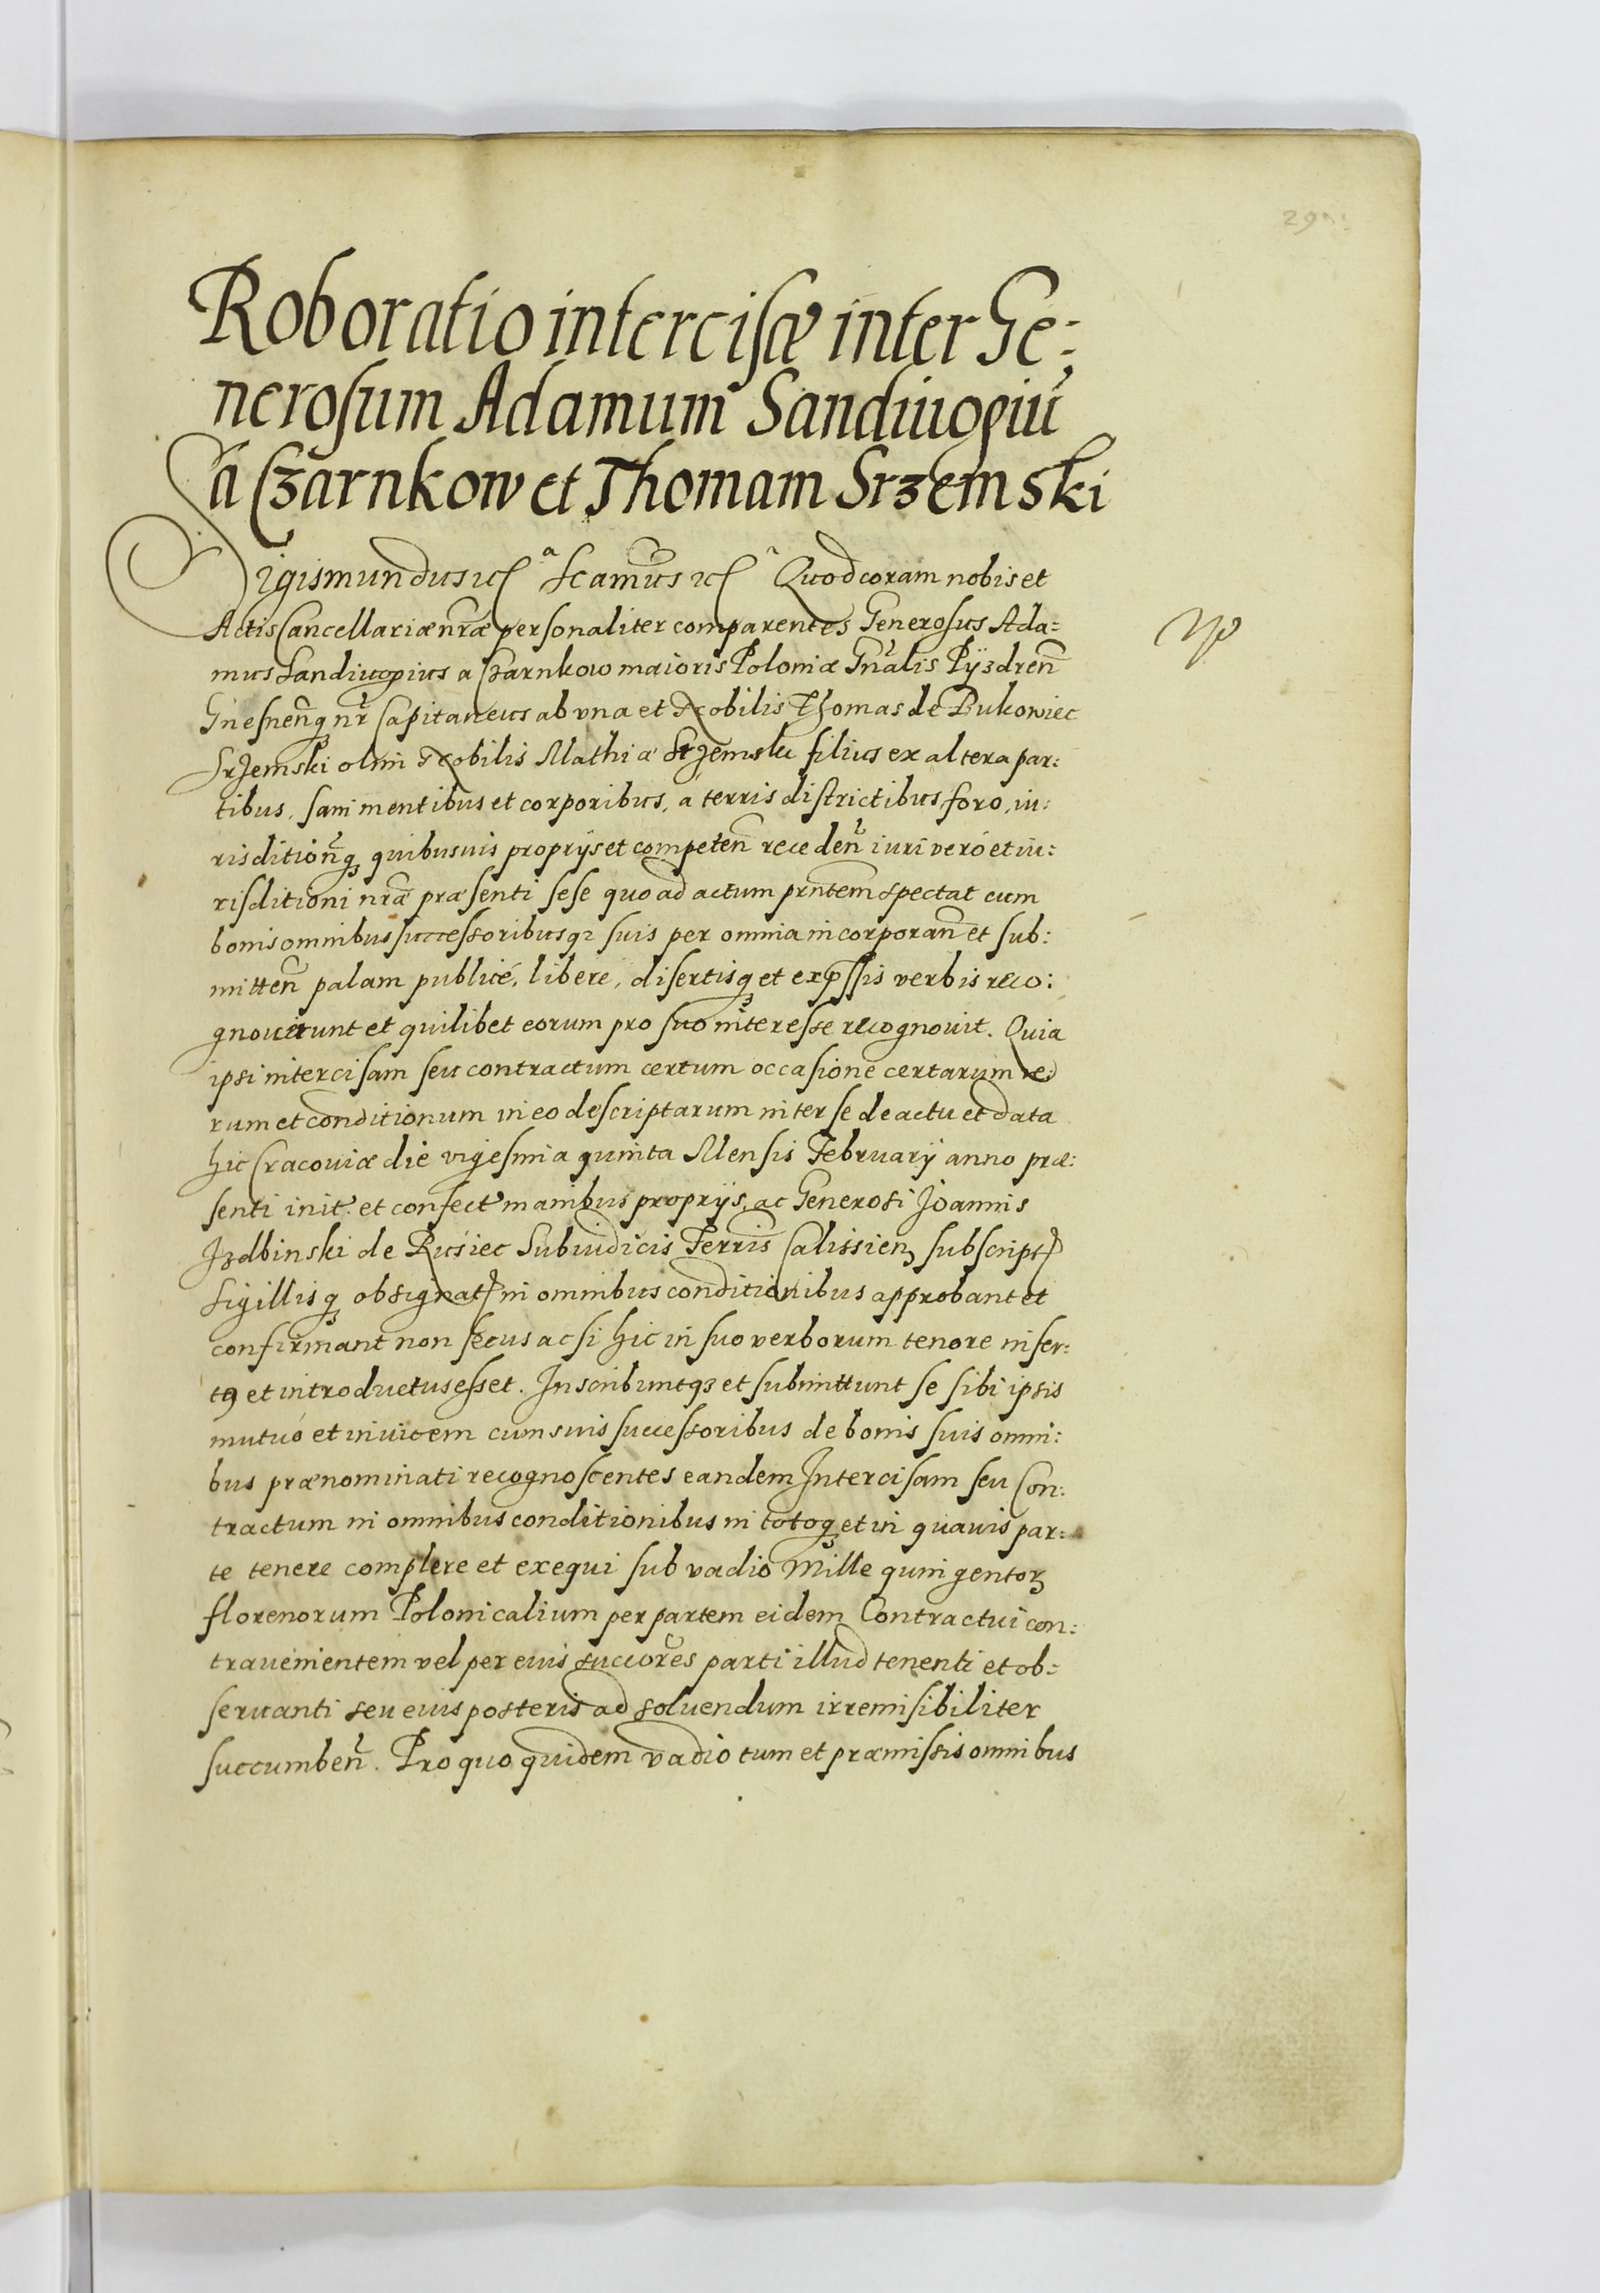 Roboratio intercisæ inter Ge:
nerosum Adamum Sandiuogiũ
a Czarnkow et Thomam Srzemski
Sigismundus etc Quod coram nobis et
Actis Cancellariæ nr̃æ personaliter comparentes Generosus Ada=
mus Sandiuogius a Czarnkow maioris Poloniæ Gñalis Pÿzdreñ
Gnesneñq nr̃ Capitaneus ab vna et Nobilis Thomas de Bukowiec
Srzemski olim Nobilis Mathiæ Srzemski filius ex altera par:
tibus, sani mentibus et corporibus, a terris districtibus foro, iu:
risditioñq quibusuis proprijs et competeñ recedeñ iuri veró et iu:
risditioni nr̃æ præsenti sese quo ad actum prñtem spectat cum
bonis omnibus successoribusq suis per omnia incorporañ et sub:
mitteñ palam publicé, libere, disertisq et exp̃ssis verbis reco:
gnouerunt et quilibet eorum pro suo interesse recognouit. Quia
ipsi intercisam seu contractum certum occasione certarum re:
rum et conditionum in eo descriptarum inter se de actu et data
hic Cracouiæ die vigesima quinta Mensis February anno præ:
senti init. et confect manibus proprijs, ac Generosi Joannis
Jzdbinski de Rusiec Subiudicis Terris Calissieñ subscript
sigillisq obsignat in omnibus conditionibus approbant et
confirmant non secus ac si hic in suo verborum tenore inser:
t9 et introductus esset. Inscribuntq3 et submittunt se sibi ipsis
mutuó et inuicem cum suis successoribus de bonis suis omni:
bus prænominati recognoscentes eandem Intercisam seu Con:
tractum in omnibus conditionibus in totoq et in quauis par:
te tenere complere et exequi sub vadio Mille quingentoꝝ
florenorum Polonicalium per partem eidem Contractui con:
trauenientem vel per eius succor̃es parti illud tenenti et ob=
seruanti seu eius posteris ad soluendum irremisibiliter
succumbeñ. Pro quo quidem vadio tum et præmissis omnibus